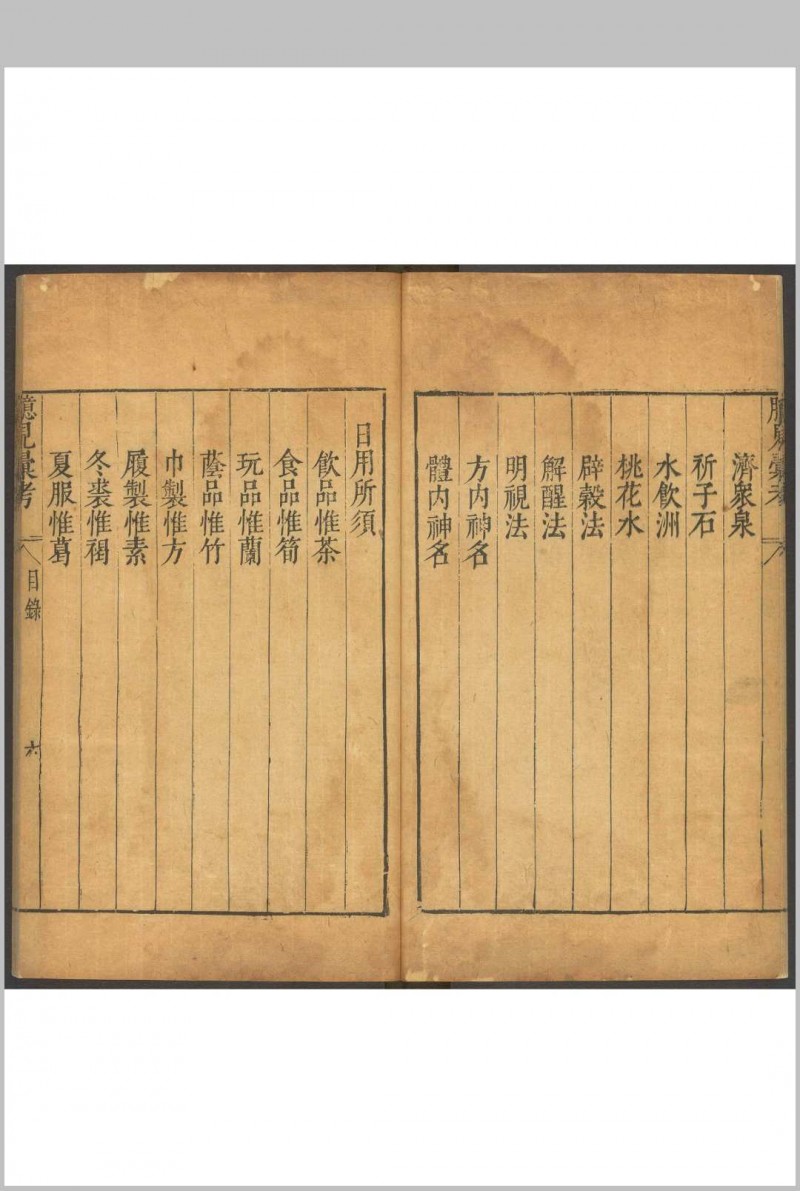 臆見彙考
濟衆泉
祈子石
水飲洲
桃花水
辟穀法
解酲法
明視法
方内神名
體内神名
日用所須
飲品惟茶
食品惟筍
玩品惟蘭
蔭品惟竹
巾製惟方
履製惟素
冬裘惟褐
夏服惟葛
臆見彙考
目錄
六